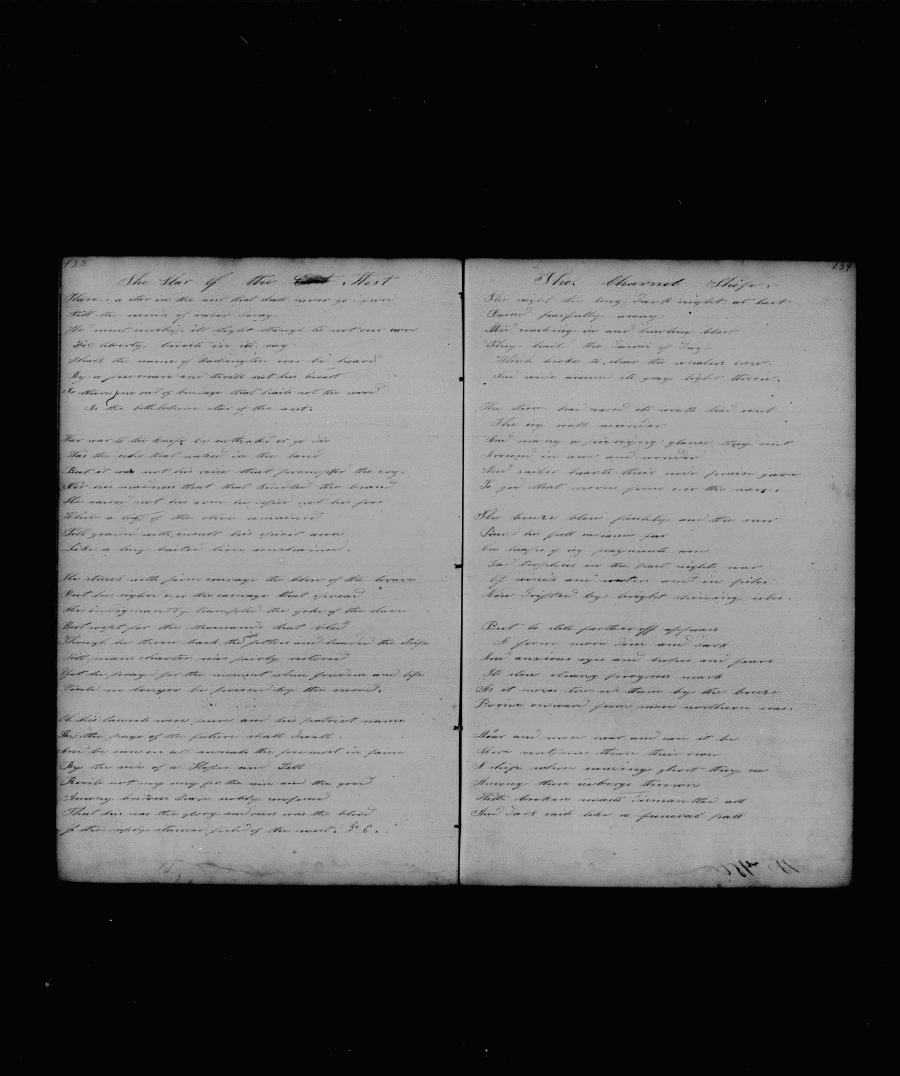 138
The Star of the West
There's a star in the west that shall never go down
Till the records of valor decay
We must worship its light though tis not our own
For liberty bursts in its ray
Shall the name of Washington ever be heard
By a freeman and thrill not his breast
Is there one out of bondage that hails not the word
As the bethlehem star of the west.
War war to the knife be enthralled or ye die
Was the echo that waked in the land
But it was not his voice that prompted the cry
Nor his madness that that kindled the brand
He raised not his arm he defied not his foes
While a leaf of the olive remained
Till goaded with insult his spirit arose
Like a long baited lion unchained.
He struck with firm courage the blow of the brave
But he sighed o'er the carnage that spread
He indignantly trampled the yoke of the slave
But wept for the thousands that bled
Though he threw back the fetters and headed the strife
Till mans charter was fairly restored
Yet he prayed for the moment when freedom and life
Could no longer be pressed by the sword.
Oh his laurels were pure and his patriot name
In the page of the future shall dwell
And be seen in all annals the foremost in fame
By the side of a Hofer and Tell
Revile not my song for the wise and the good
Among britons have nobly confessed
That his was the glory and ours was the blood
of the deeply stained field of the west.
139
The Charnel Ship.
The night the long dark night at last
Passed fearfully away
Mid crashing ice and howling blast
They hailed the dawn of day
Which broke to cheer the whalers crew
And wide around its gray light threw.
The storm had ceased its wrath had rent
The icy wall asunder
And many a piercing glance they sent
Around in awe and wonder
And sailor hearts their rude praise gave
To god that moved from o'er the wave.
The breeze blew freshly and the sun
Poured his full radiance far
On heaps of icy fragments won
Sad trophies in the past nights war
Of winds and waters and in piles
Now drifted by bright shining isles.
But lo still farther off appears
A form more dim and dark
And anxious eyes and hopes and fears
Its slow strange progress mark
As it moves towards them by the breeze
Borne onward from more northern seas.
Near and more near and can it be
More venturous than their own
A ship whose seeming ghost they see
Among the icebergs thrown
With broken masts dismantled all
And dark sails like a funeral pall